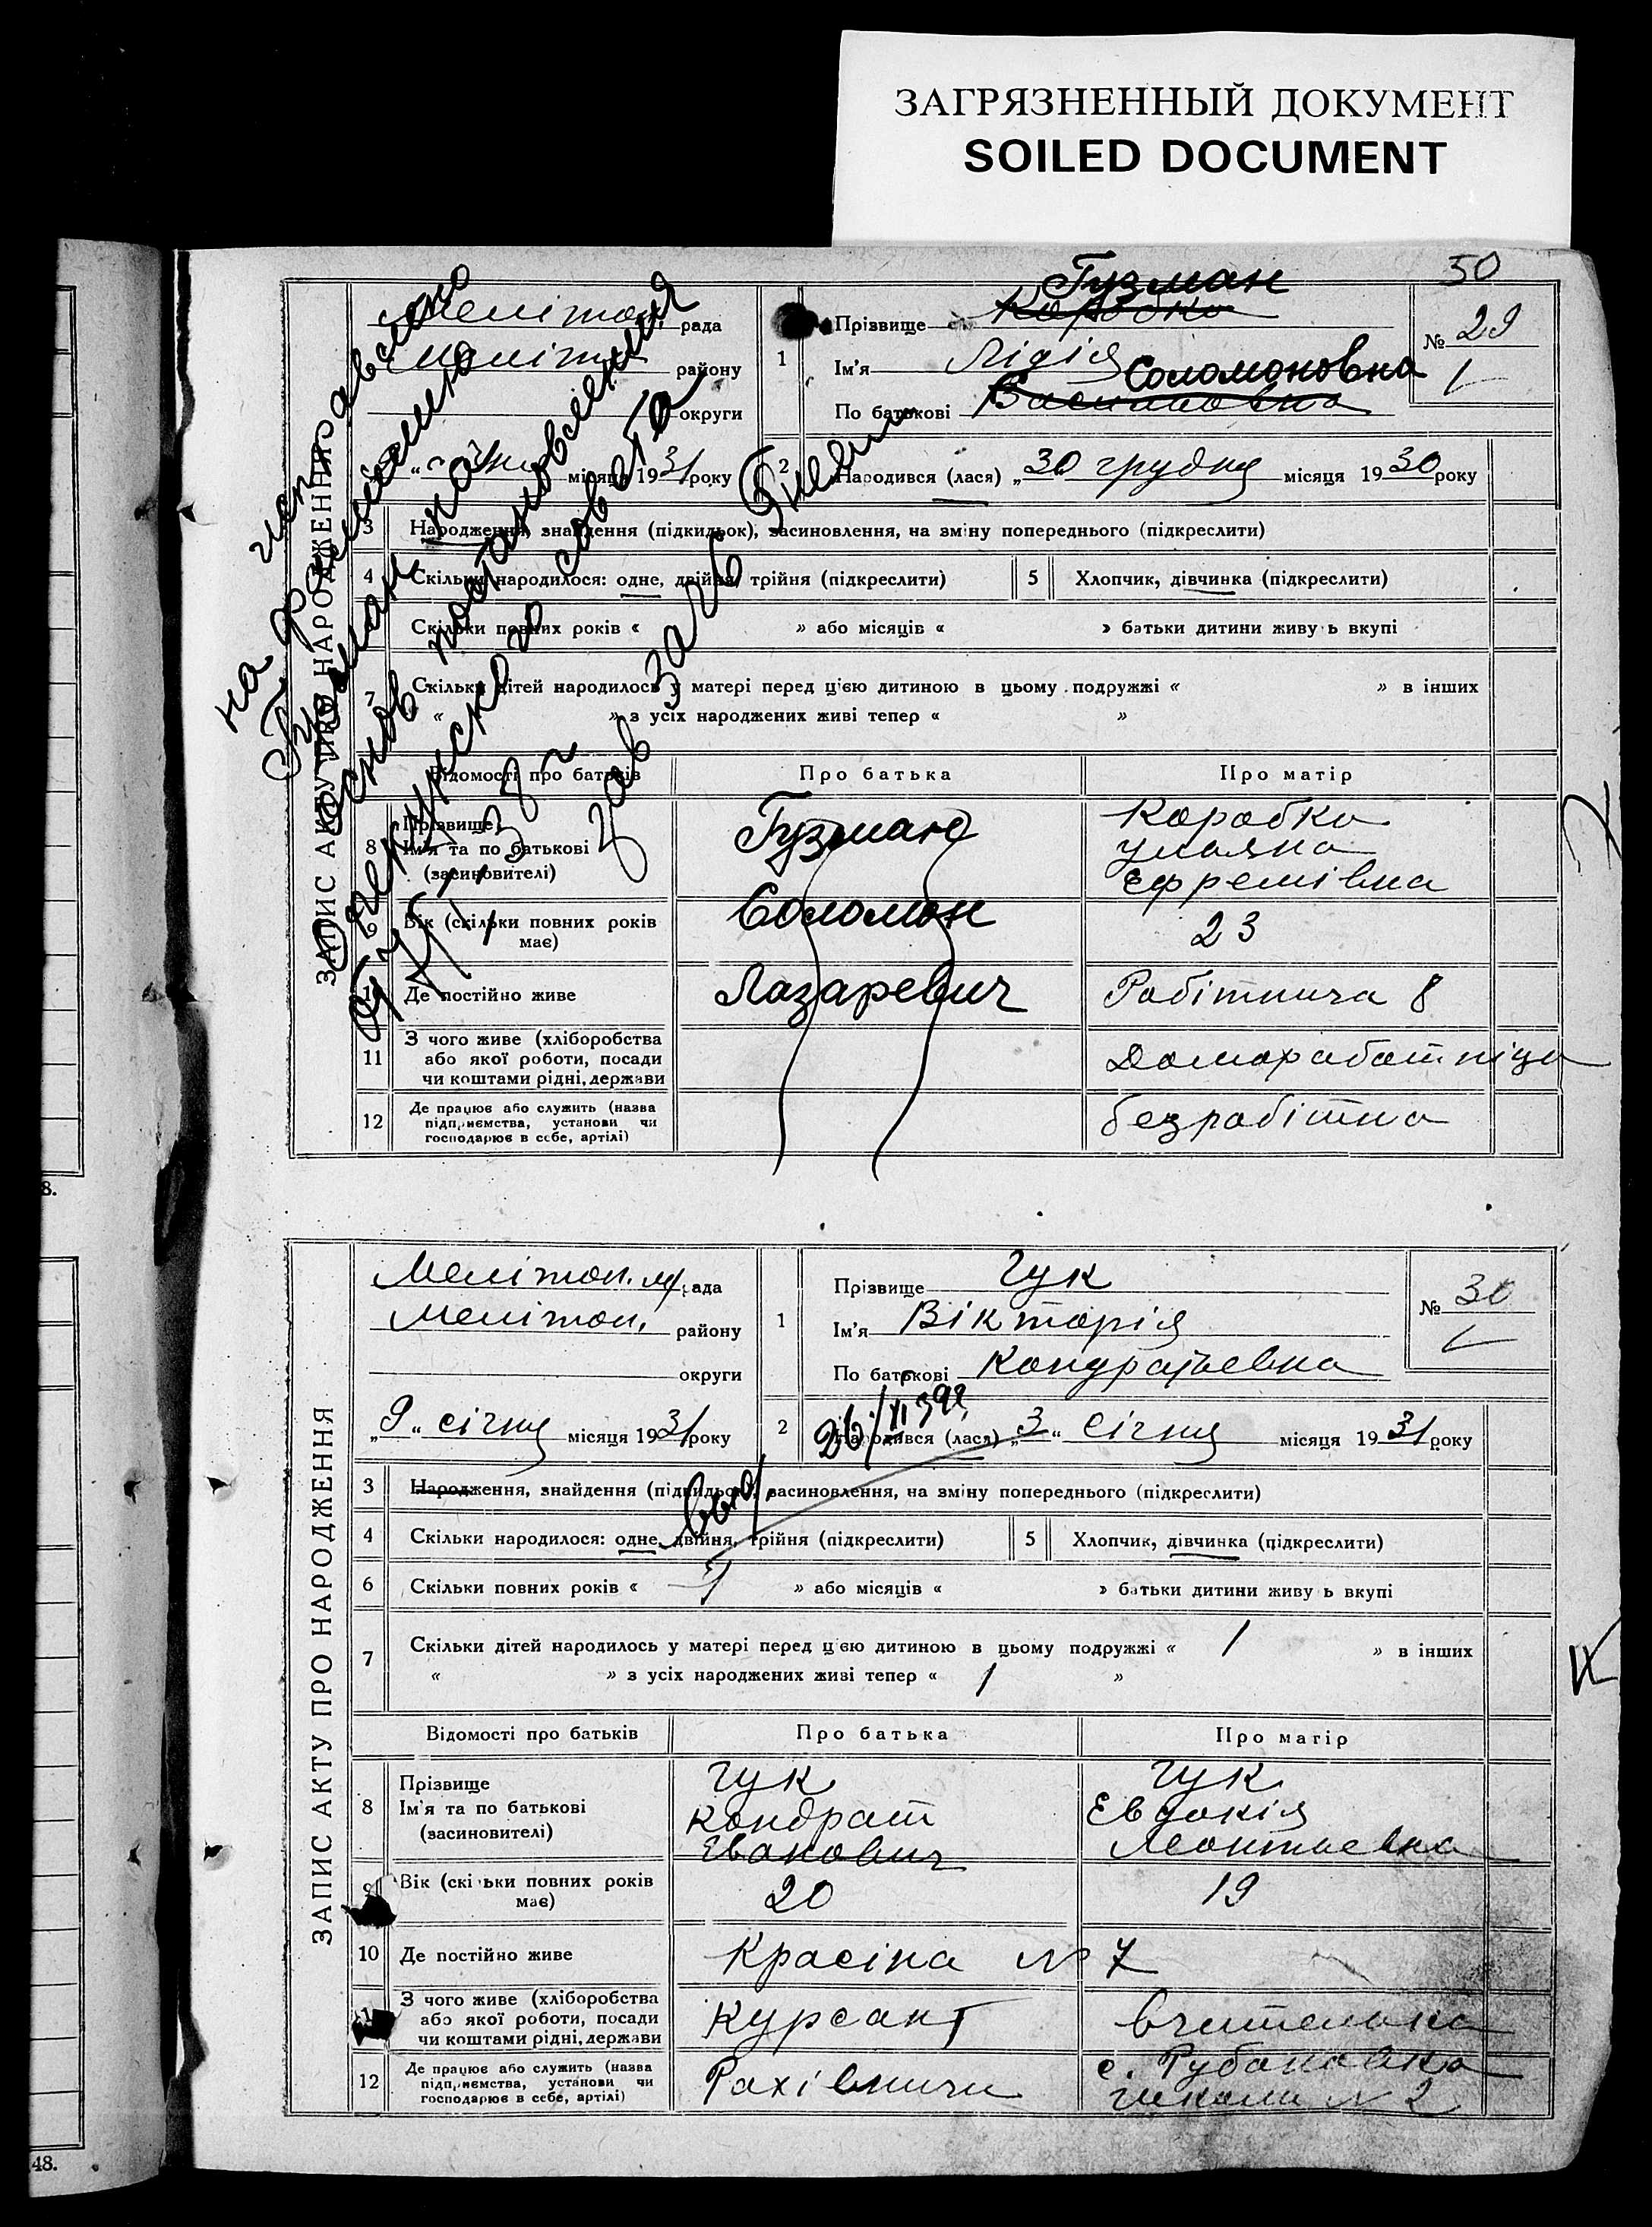 ЗАГРЯЗНЕННЫЙ ДОКУМЕНТ
SOILED DOCUMENT
50
ЗАПИС АКТУ ПРО НАРОДЖЕННЯ
Мелітоп. рада
Меліт району
округи
місяця 1931 року
1
Гузман
Прізвище Коробко
Ім'я Лідія
Соломоновна
По батькові Василіовна
№ 29
2 Народився (лася) „30 грудня місяця 1930 року
3 Народження, знайдення (підкидьок), засиновлення, на зміну попереднього (підкреслити)
4 Скільки народилося: одне, двійня, трійня (підкреслити) 5 Хлопчик, дівчинка (підкреслити)
Скільки повних років « » або місяців « » батьки дитини живуть вкупі
7 Скільки дітей народилось у матері перед цією дитиною в цьому подружжі « » в інших
« » з усіх народжених живі тепер « »
Відомості про батьків Про батька Про матір
8 Прізвище
Ім'я та по батькові
(засиновителі)
Гузман
Коробко
Уляна
Ефремівна
9 Вік (скільки повних років має)
Соломон
23
10 Де постійно живе
Лазаревич
Робітнича 8
11 З чого живе (хліборобства
або якої роботи, посади
чи коштами рідні, держави
Домоработніця
12 Де працює або служить (назва
підприємства, установи чи
господарює в себе, артілі)
безробітна
исправлено
на фамилию
Гузман на
основ постановления
Генического
совета
зав загс
ЗАПИС АКТУ ПРО НАРОДЖЕННЯ
Мелітоп. м/рада
Мелітоп. району
округи
„9“ січня місяця 1931 року
1
Прізвище Гук
Ім'я Вікторія
По батькові Кондратьевна
№ 30
26/II 39г.
2 Народився (лася) „3“ січня місяця 1931 року
3 Народження, знайдення (підкидьок), засиновлення, на зміну попереднього (підкреслити)
4 Скільки народилося: одне, двійня, трійня (підкреслити) 5 Хлопчик, дівчинка (підкреслити)
6 Скільки повних років « » або місяців « » батьки дитини живуть вкупі
7 Скільки дітей народилось у матері перед цією дитиною в цьому подружжі « 1 » в інших
« » з усіх народжених живі тепер « 1 »
Відомості про батьків Про батька Про матір
8 Прізвище
Ім'я та по батькові
(засиновителі)
Гук
Кондрат
Еванович
Гук
Евдокія
Леонтьевна
9 Вік (скільки повних років має)
20
19
10 Де постійно живе
Красіна № 7
11 З чого живе (хліборобства
або якої роботи, посади
чи коштами рідні, держави
Курсант
вчителька
12 Де працює або служить (назва
підприємства, установи чи
господарює в себе, артілі)
с. Рубановка
школи N 2
8.
48.